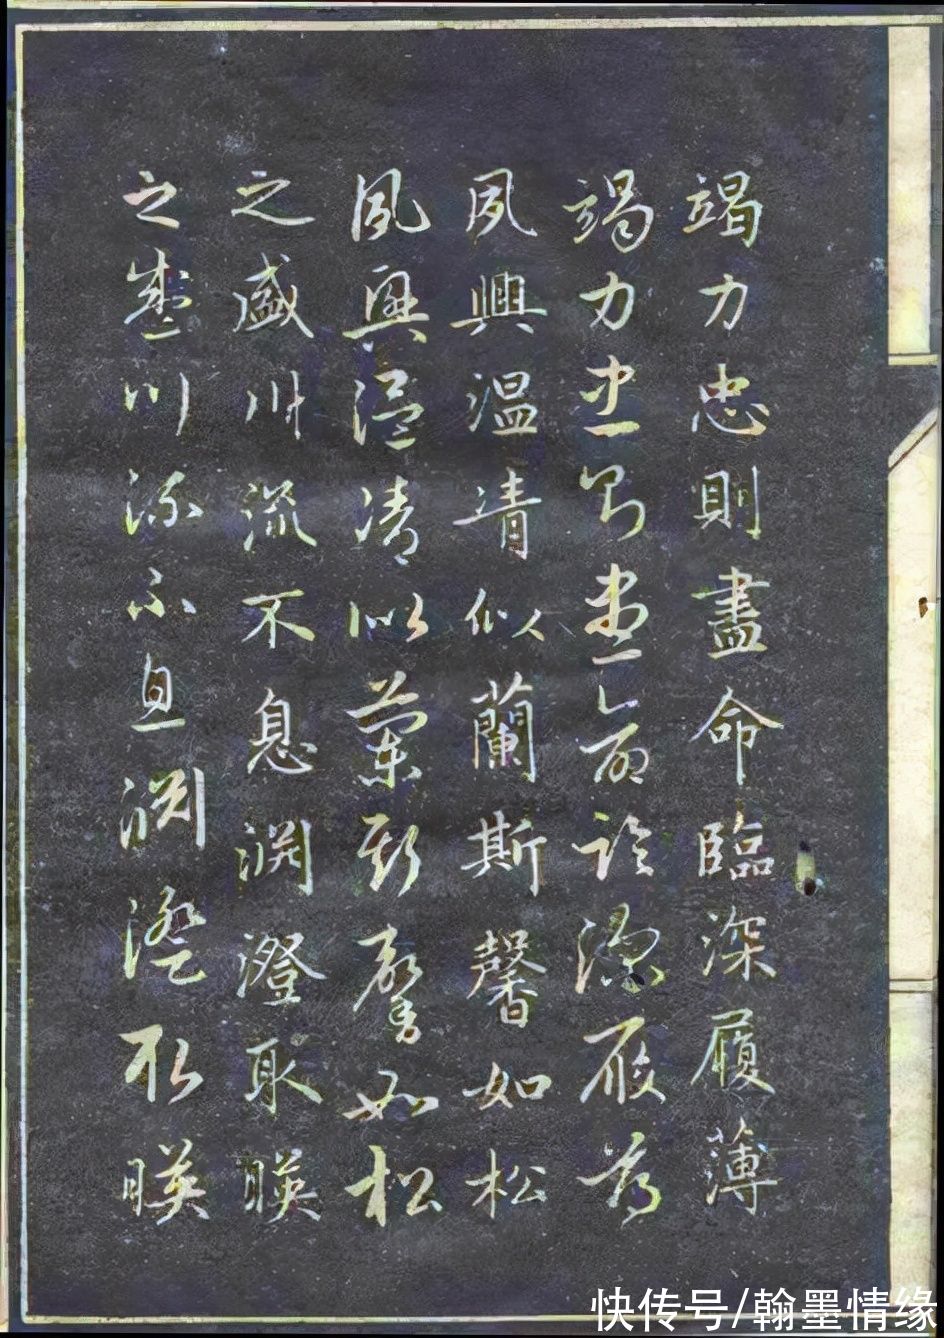 竭力忠則盡命臨深履薄
竭力忠則盡命臨深履薄
夙興溫凊似蘭斯馨如松
夙興溫凊似蘭斯馨如松
之盛川流不息淵澄取暎
之盛川流不息淵澄取暎
快传号/翰墨情缘